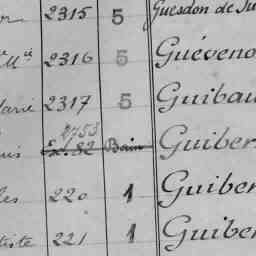 or 2315 5 Guesdon de Ju
e Mie 2316 5 Guéveno
darie 2317 5 Guibau
2753
is Ex. 82 Bain Guiber
les 220 1 Guiber
tiste 221 1 Guiber